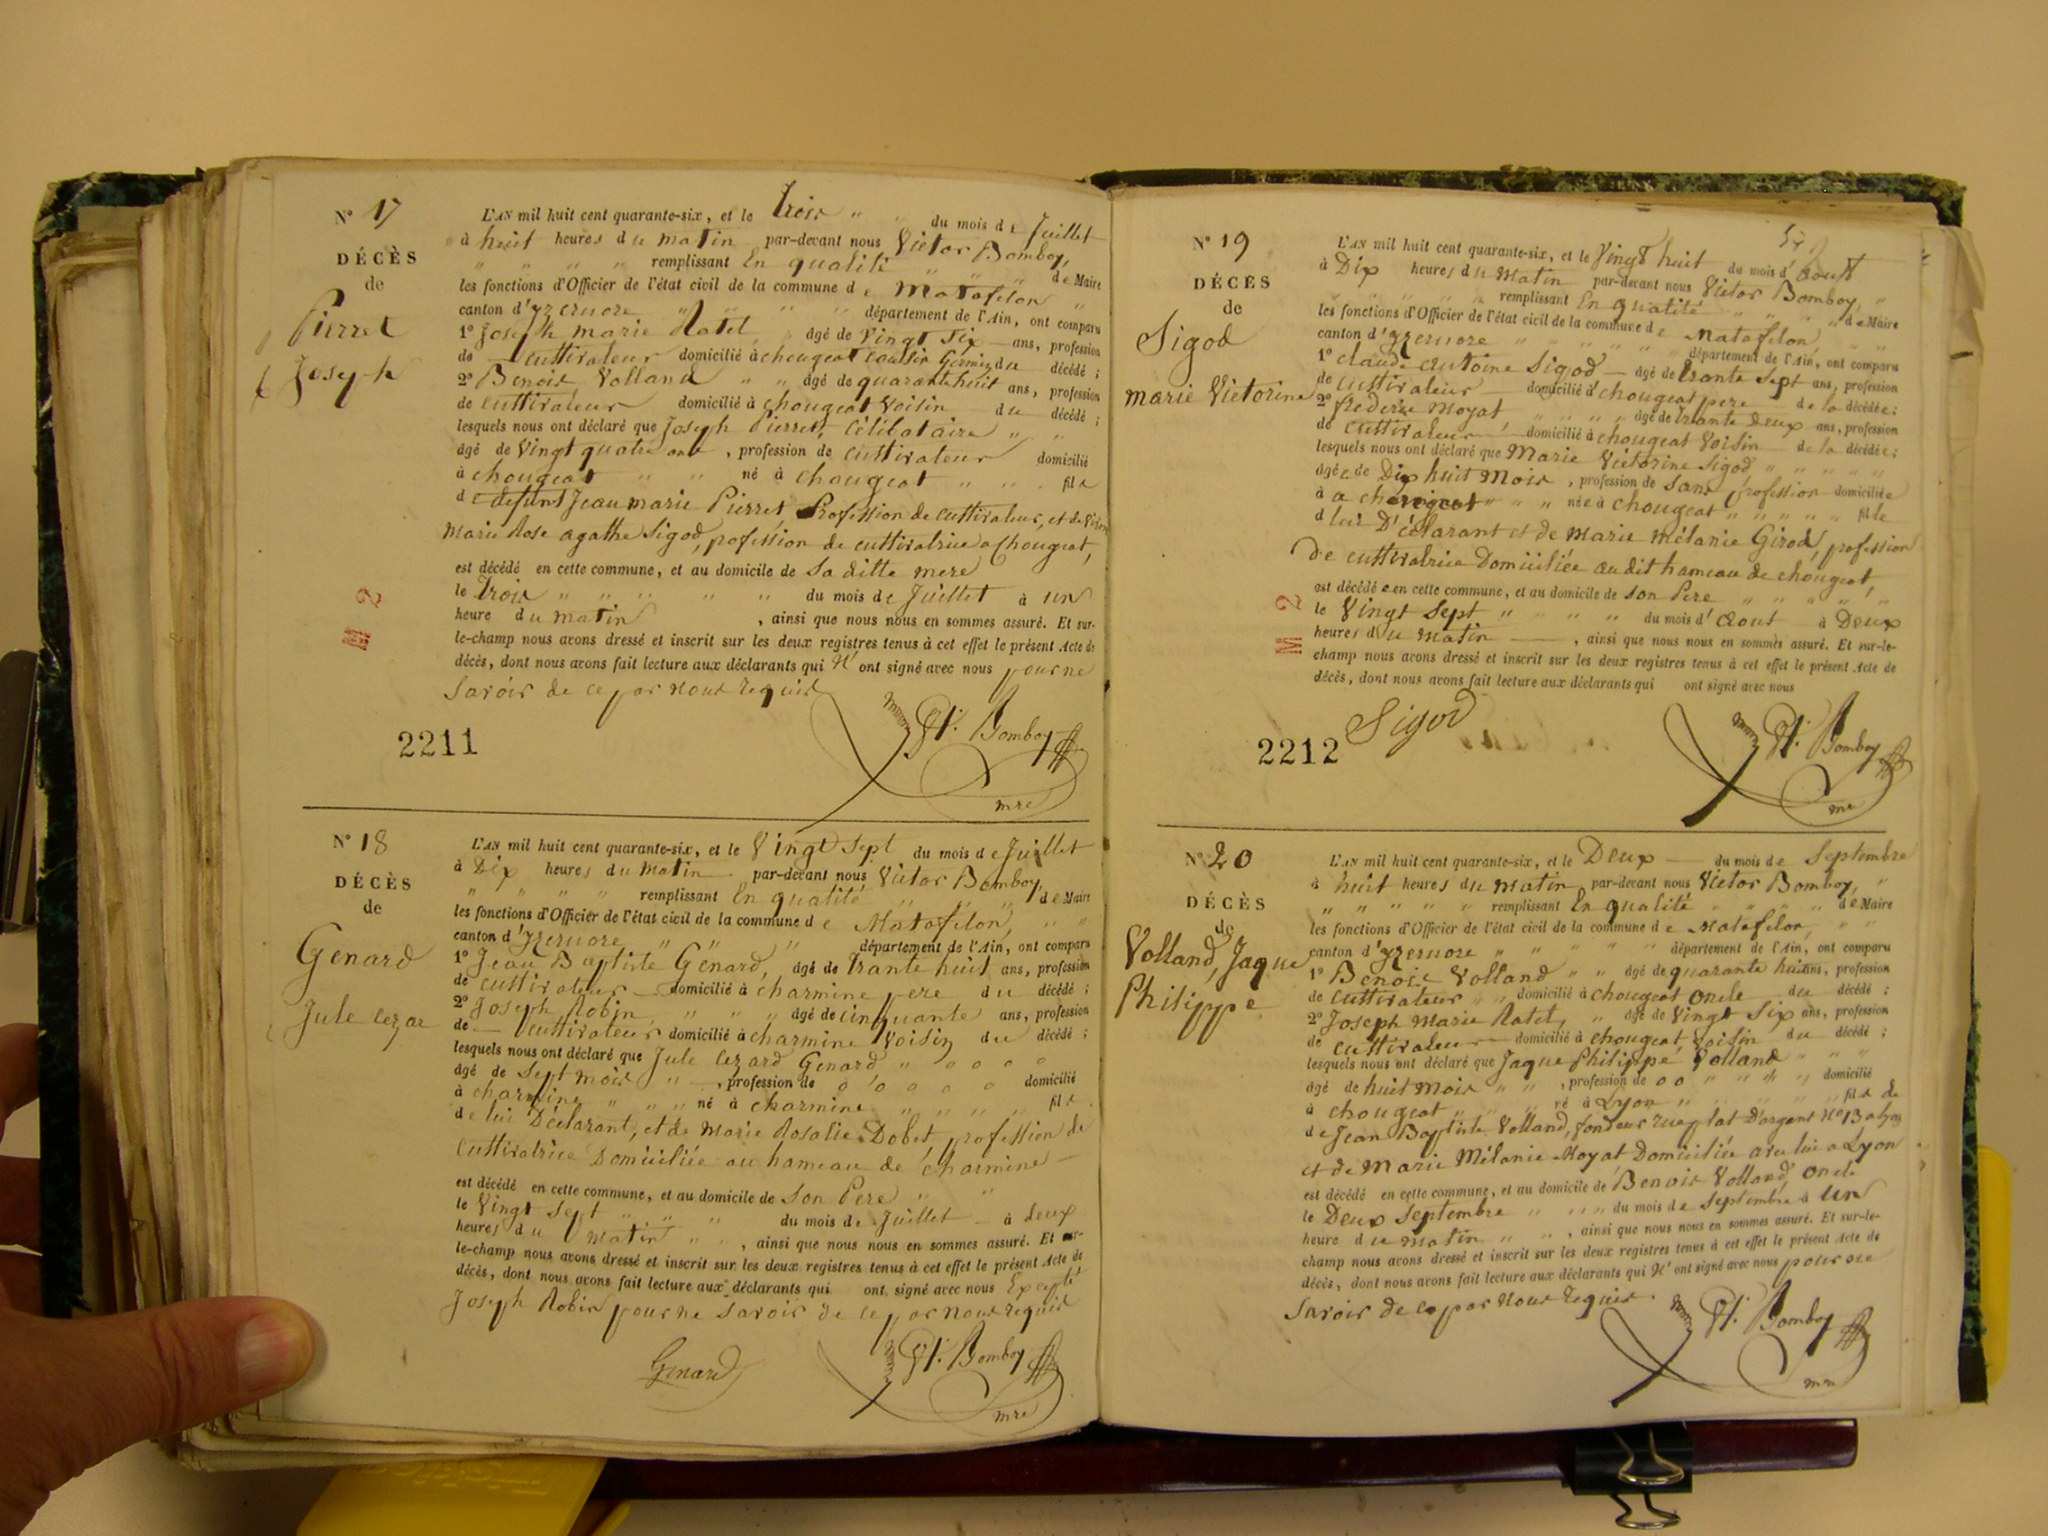 N° 17
DÉCÈS
de
Pierret
Joseph
L'AN mil huit cent quarante-six, et le trois " " du mois de Juillet
à huit heures du matin par-devant nous Victor Bomboy,
" " " " remplissant En qualité " " " de Maire
les fonctions d'Officier de l'état civil de la commune de Matafelon "
canton d'yzernore " " " " département de l'Ain, ont comparu
1° Joseph marie Ratel " âgé de Vingt Six ans, profession
de cultivateur domicilié à chougeat cousin Germin du décédé ;
2° Benoit Volland " " âgé de quarante huit ans, profession
de cultivateur domicilié à chougeat Voisin du décédé ;
lesquels nous ont déclaré que Joseph Pierret, Célibataire " "
âgé de Vingt quatre ans , profession de cultivateur domicilié
à chougeat " " né à chougeat " " " fils
de defunt Jean marie Pierret Profession de cultivateur, et de
Marie Rose agathe Sigod, profession de cultivatrice a Chougeat,
est décédé en cette commune, et au domicile de Sa ditte mere
le trois " " " " " du mois de Juillet à un
heure du matin , ainsi que nous nous en sommes assuré. Et sur-
le-champ nous avons dressé et inscrit sur les deux registres tenus à cet effet le présent Acte de
décès, dont nous avons fait lecture aux déclarants qui N' ont signé avec nous pour ne
Savoir de ce par nous requis
M 2
2211
Vt. Bomboy
mre
N° 18
DÉCÈS
de
Génard
Jule cezar
L'AN mil huit cent quarante-six, et le Vingt Sept du mois de Juillet
à Dix heures du matin par-devant nous Victor Bomboy,
" " " " remplissant En qualité " " " de Maire
les fonctions d'Officier de l'état civil de la commune de Matafelon, " "
canton d'yzernore " " " département de l'Ain, ont comparu
1° Jean Baptiste Génard, âgé de trante huit ans, profession
de cultivateur domicilié à charmine pere du décédé ;
2° Joseph Robin " " " âgé de cinquante ans, profession
de cultivateur domicilié à charmine Voisin du décédé ;
lesquels nous ont déclaré que Jule cezard Génard " o o o
âgé de Sept mois " , profession de o o o o o domicilié
à charmine " " " né à charmine " " " " fils
de lui Déclarant, et de Marie Rosalie Dobet, profession de
cultivatrice Domiciliée au hameau de charmine
est décédé en cette commune, et au domicile de Son Pere " "
le Vingt Sept " " " du mois de Juillet à deux
heures du matin " " , ainsi que nous nous en sommes assuré. Et sur-
le-champ nous avons dressé et inscrit sur les deux registres tenus à cet effet le présent Acte de
décès, dont nous avons fait lecture aux déclarants qui ont signé avec nous Excepté
Joseph Robin pour ne Savoir de ce par nous requis
Génard
Vt. Bomboy
mre
N° 19
DÉCÈS
de
Sigod
marie Victorine
L'AN mil huit cent quarante-six, et le Vingt huit du mois d'Aoust
à Dix heures du matin par-devant nous Victor Bomboy, "
remplissant En qualité " " " " de Maire
les fonctions d'Officier de l'état civil de la commune de Matafelon, "
canton d'yzernore " " " " " département de l'Ain, ont comparu
1° claude antoine Sigod âgé de trante Sept ans, profession
de cultivateur domicilié à chougeat pere de la décédée ;
2° fréderic moyat " " " " âgé de trante Deux ans, profession
de cultivateur domicilié à chougeat Voisin de la décédée ;
lesquels nous ont déclaré que Marie Victorine Sigod " " " " "
âgée de Dix huit Mois , profession de Sans profession domiciliée
à a chougeat " " " née à chougeat " " " " " fille
de lui D'éclarant et de Marie Mélanie Girod, profession
de cultivatrice Domiciliée au dit hameau de chougeat,
est décédée en cette commune, et au domicile de son Pere " " " " "
le Vingt Sept " " " " du mois d'Aout à Deux
heures du matin , ainsi que nous nous en sommes assuré. Et sur-le-
champ nous avons dressé et inscrit sur les deux registres tenus à cet effet le présent Acte de
décès, dont nous avons fait lecture aux déclarants qui ont signé avec nous
M 2
2212
Sigod
Vt. Bomboy
mre
N° 20
DÉCÈS
de
Volland, Jaque
Philippe
L'AN mil huit cent quarante-six, et le Deux du mois de Septembre
à huit heures du matin par-devant nous Victor Bomboy, "
" " " " " remplissant En qualité " " " " de Maire
les fonctions d'Officier de l'état civil de la commune de Matafelon, " "
canton d'yzernore " " " " " département de l'Ain, ont comparu
1° Benoit Volland " " âgé de quarante huit ans, profession
de cultivateur " " domicilié à chougeat Oncle du décédé ;
2° Joseph Marie Ratel, " âgé de Vingt Six ans, profession
de cultivateur domicilié à chougeat Voisin du décédé ;
lesquels nous ont déclaré que Jaque Philippe Volland " " "
âgé de huit mois " " , profession de o o " " " " domicilié
à chougeat " " né à Lyon " " " " " fils de
de Jean Baptiste Volland, fondeur rue plat D'argent N° 13 a Lyon
et de Marie Mélanie Moyat Domiciliée avec lui a Lyon
est décédé en cette commune, et au domicile de Benoit Volland, Oncle
le Deux Septembre " " " du mois de Septembre à un
heure du matin " " , ainsi que nous nous en sommes assuré. Et sur-le-
champ nous avons dressé et inscrit sur les deux registres tenus à cet effet le présent Acte de
décès, dont nous avons fait lecture aux déclarants qui N' ont signé avec nous pour ne
Savoir de ce par nous requis.
Vt. Bomboy
mre